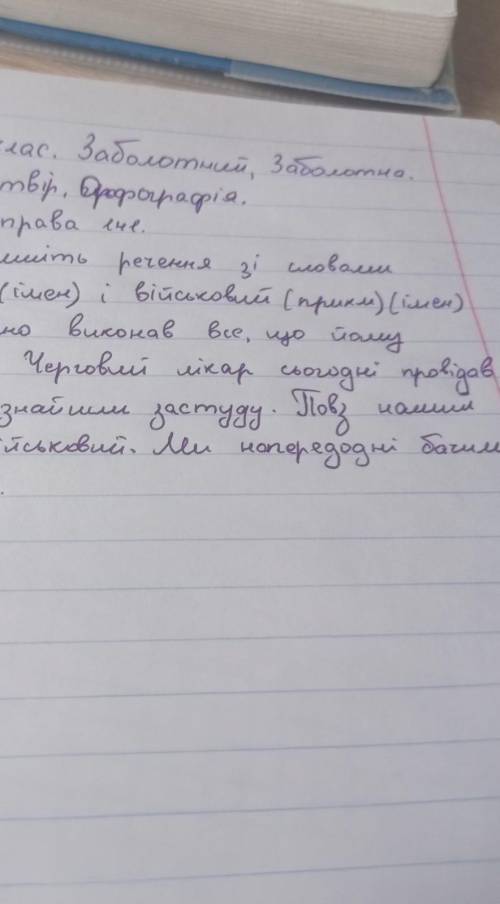 лас. Заболотний, Заболотна.
твір. Орфографія.
права
шіть речення зі словами
(імен) і військовий (прикм) (імен)
но виконав все, що йому
Черговий лікар сьогодні провідав
знайшли застуду. Повз наший
йськовий. Ми напередодні бачили
.